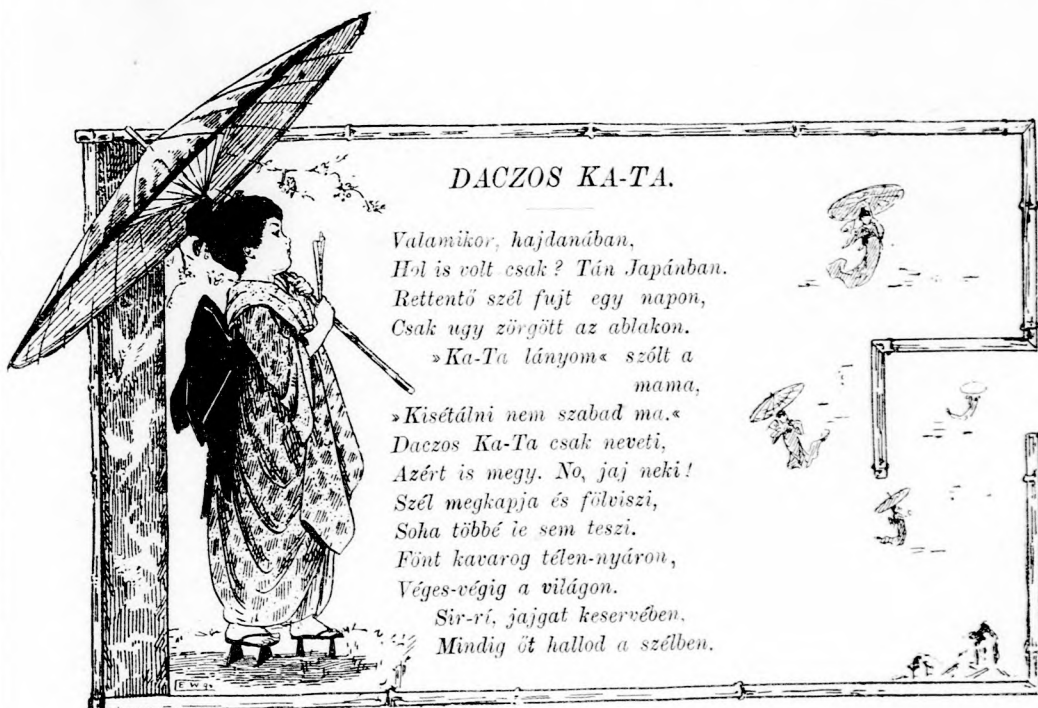 DACZOS KA-TA.
Valamikor, hajdanában,
Hol is volt csak? Tán Japánban.
Rettentő szél fujt egy napon,
Csak ugy zörgött az ablakon.
»Ka-Ta lányom« szólt a
mama,
»Kisétálni nem szabad ma.«
Daczos Ka-Ta csak neveti,
Azért is megy. No, jaj neki!
Szél megkapja és fölviszi,
Soha többé le sem teszi.
Fönt kavarog télen-nyáron,
Véges-végig a világon.
Sir-rí, jajgat keservében,
Mindig őt hallod a szélben.